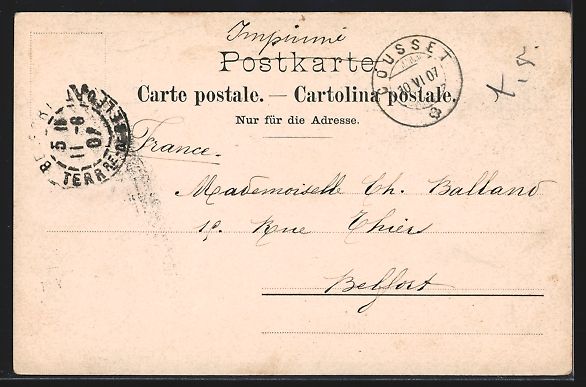 Imprimé
Postkarte.
Carte postale. — Cartolina postale.
Nur für die Adresse.
COUSSET
10 VI 07
BELFORT
5 11-6 07
France.
Mademoiselle Ch. Balland
19. Rue Thiers
Belfort